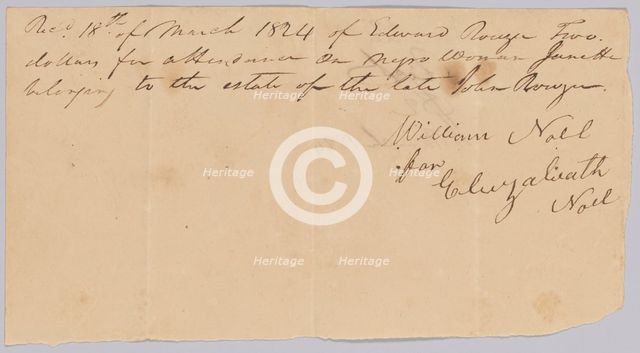 Rec.d 18th of March 1824 of Edward Rouzee Two
dollars for attendance on negro Woman Janette
belonging to the estate of the late John Rouzee.
William Noel
for
Eluzabeath
Noel
Heritage Heritage
Heritage Heritage
©
Heritage Heritage